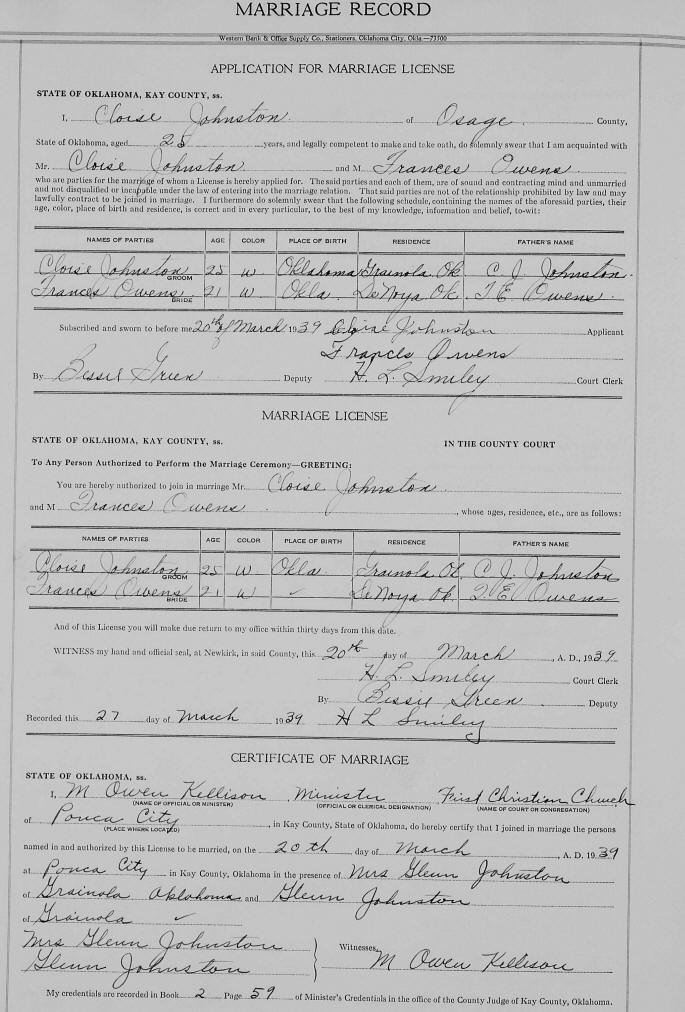 MARRIAGE RECORD
Western Bank & Office Supply Co., Stationers, Oklahoma City, Okla.—73500
APPLICATION FOR MARRIAGE LICENSE
STATE OF OKLAHOMA, KAY COUNTY, ss.
I, Cloise Johnston of Osage County,
State of Oklahoma, aged 25 years, and legally competent to make and take oath, do solemnly swear that I am acquainted with
Mr. Cloise Johnston and M Frances Owens
who are parties for the marriage of whom a License is hereby applied for. The said parties and each of them, are of sound and contracting mind and unmarried
and not disqualified or incapable under the law of entering into the marriage relation. That said parties are not of the relationship prohibited by law and may
lawfully contract to be joined in marriage. I furthermore do solemnly swear that the following schedule, containing the names of the aforesaid parties, their
age, color, place of birth and residence, is correct and in every particular, to the best of my knowledge, information and belief, to-wit:
NAMES OF PARTIES AGE COLOR PLACE OF BIRTH RESIDENCE FATHER'S NAME
Cloise Johnston GROOM 25 W Oklahoma Grainola Ok. C. J. Johnston.
Frances Owens BRIDE 21 W Okla. DeNoya Ok. T. E. Owens.
Subscribed and sworn to before me 20th of March 1939 Cloise Johnston Applicant
Francis Owens
By Bessie Green Deputy H. L. Smiley Court Clerk
MARRIAGE LICENSE
STATE OF OKLAHOMA, KAY COUNTY, ss. IN THE COUNTY COURT
To Any Person Authorized to Perform the Marriage Ceremony—GREETING:
You are hereby authorized to join in marriage Mr. Cloise Johnston
and M Frances Owens , whose ages, residence, etc., are as follows:
NAMES OF PARTIES AGE COLOR PLACE OF BIRTH RESIDENCE FATHER'S NAME
Cloise Johnston GROOM 25 W Okla Grainola Ok. C. J. Johnston
Frances Owens BRIDE 21 W ✓ DeNoya Ok. T. E. Owens
And of this License you will make due return to my office within thirty days from this date.
WITNESS my hand and official seal, at Newkirk, in said County, this 20th day of March , A. D., 1939
H. L. Smiley Court Clerk
By Bessie Green Deputy
Recorded this 27 day of March 1939 H L Smiley
CERTIFICATE OF MARRIAGE
STATE OF OKLAHOMA, ss.
I, M Owen Kellison , Minister , First Christian Church
(NAME OF OFFICIAL OR MINISTER) (OFFICIAL OR CLERICAL DESIGNATION) (NAME OF COURT OR CONGREGATION)
of Ponca City , in Kay County, State of Oklahoma, do hereby certify that I joined in marriage the persons
(PLACE WHERE LOCATED)
named in and authorized by this License to be married, on the 20th day of March , A. D. 1939
at Ponca City in Kay County, Oklahoma in the presence of Mrs Glenn Johnston
of Grainola Oklahoma and Glenn Johnston
of Grainola ✓
Mrs Glenn Johnston
Glenn Johnston Witnesses, M Owen Kellison
My credentials are recorded in Book 2 Page 59 of Minister's Credentials in the office of the County Judge of Kay County, Oklahoma.